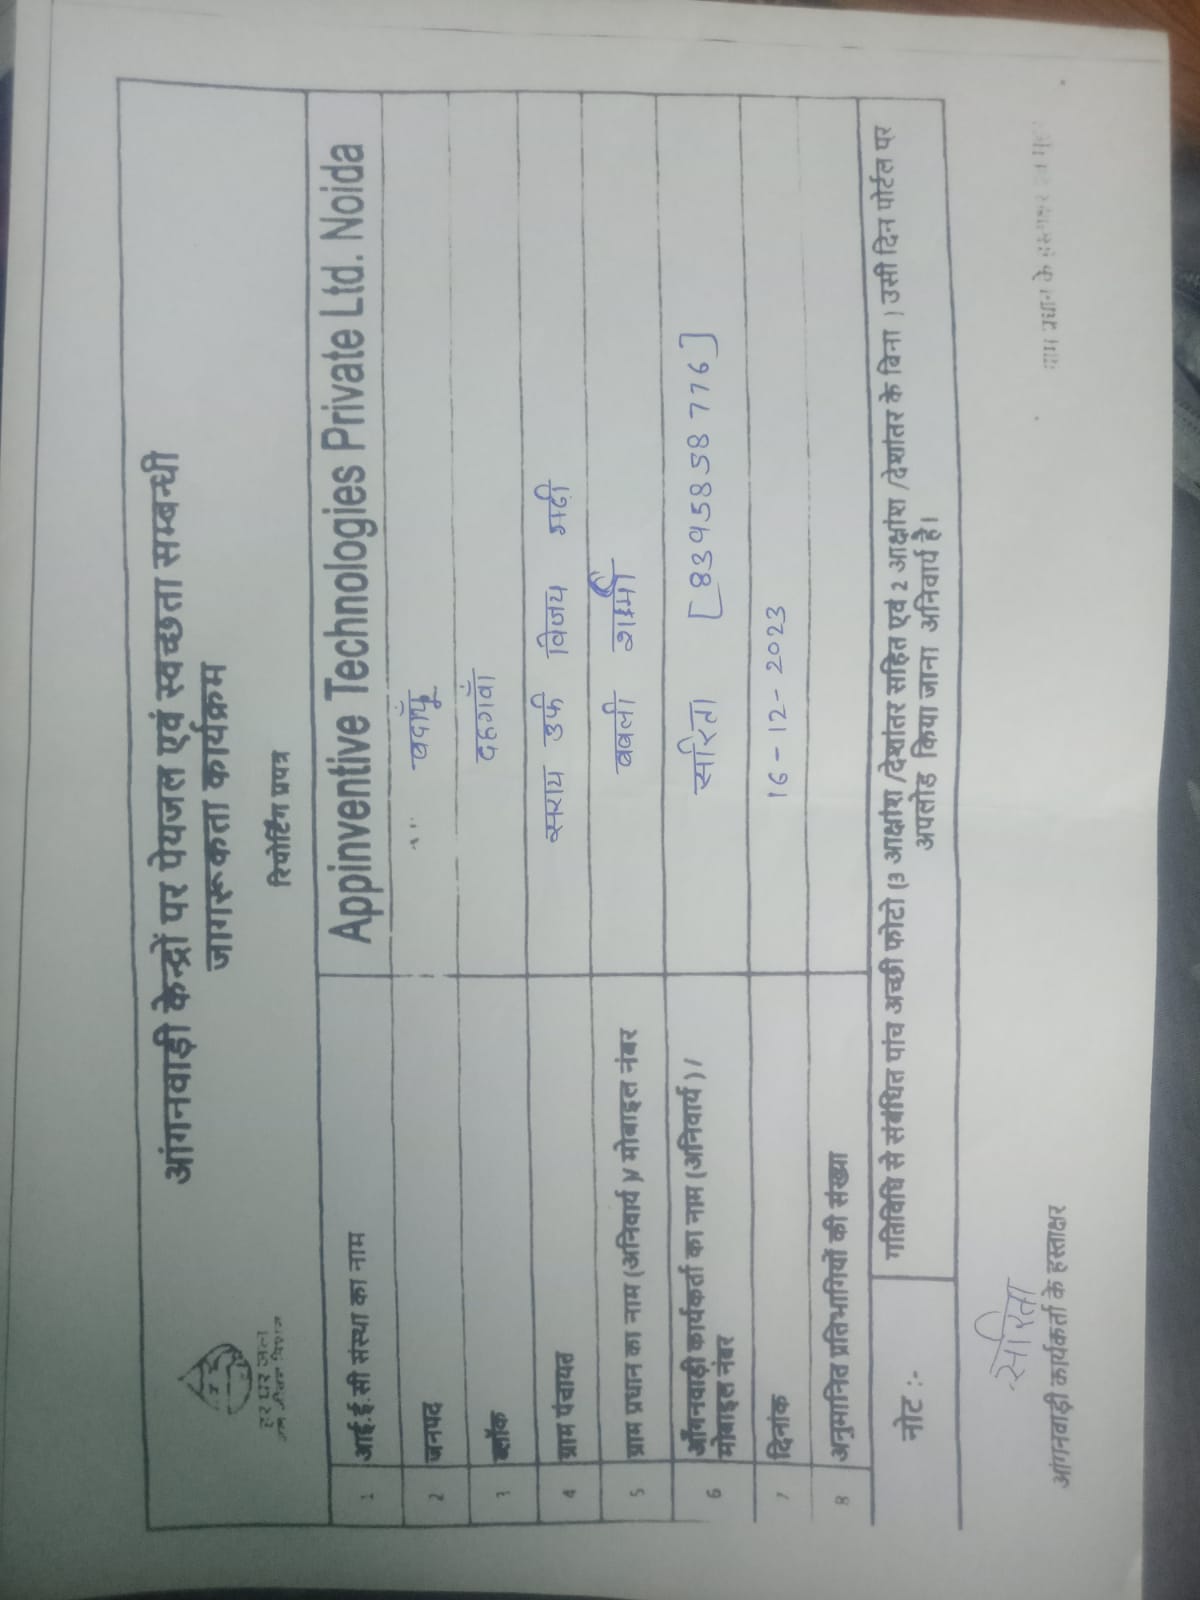 आंगनवाड़ी केन्द्रों पर पेयजल एवं स्वच्छता सम्बन्धी
जागरूकता कार्यक्रम
रिपोर्टिंग प्रपत्र
हर घर जल
1 आई.ई.सी संस्था का नाम Appinventive Technologies Private Ltd. Noida
2 जनपद बदायूँ
3 ब्लॉक दहगवाँ
4 ग्राम पंचायत सराय उर्फ विजय गढ़ी
5 ग्राम प्रधान का नाम (अनिवार्य )/ मोबाइल नंबर बबली शर्मा
6 आँगनवाड़ी कार्यकर्ता का नाम (अनिवार्य ) /
मोबाइल नंबर सरिता [8395858776]
7 दिनांक 16-12-2023
8 अनुमानित प्रतिभागियों की संख्या
नोट :- गतिविधि से संबंधित पांच अच्छी फोटो (3 आक्षांश /देशांतर सहित एवं 2 आक्षांश /देशांतर के बिना ) उसी दिन पोर्टल पर
अपलोड किया जाना अनिवार्य है।
सरिता
आंगनवाड़ी कार्यकर्ता के हस्ताक्षर
ग्राम प्रधान के हस्ताक्षर एवं